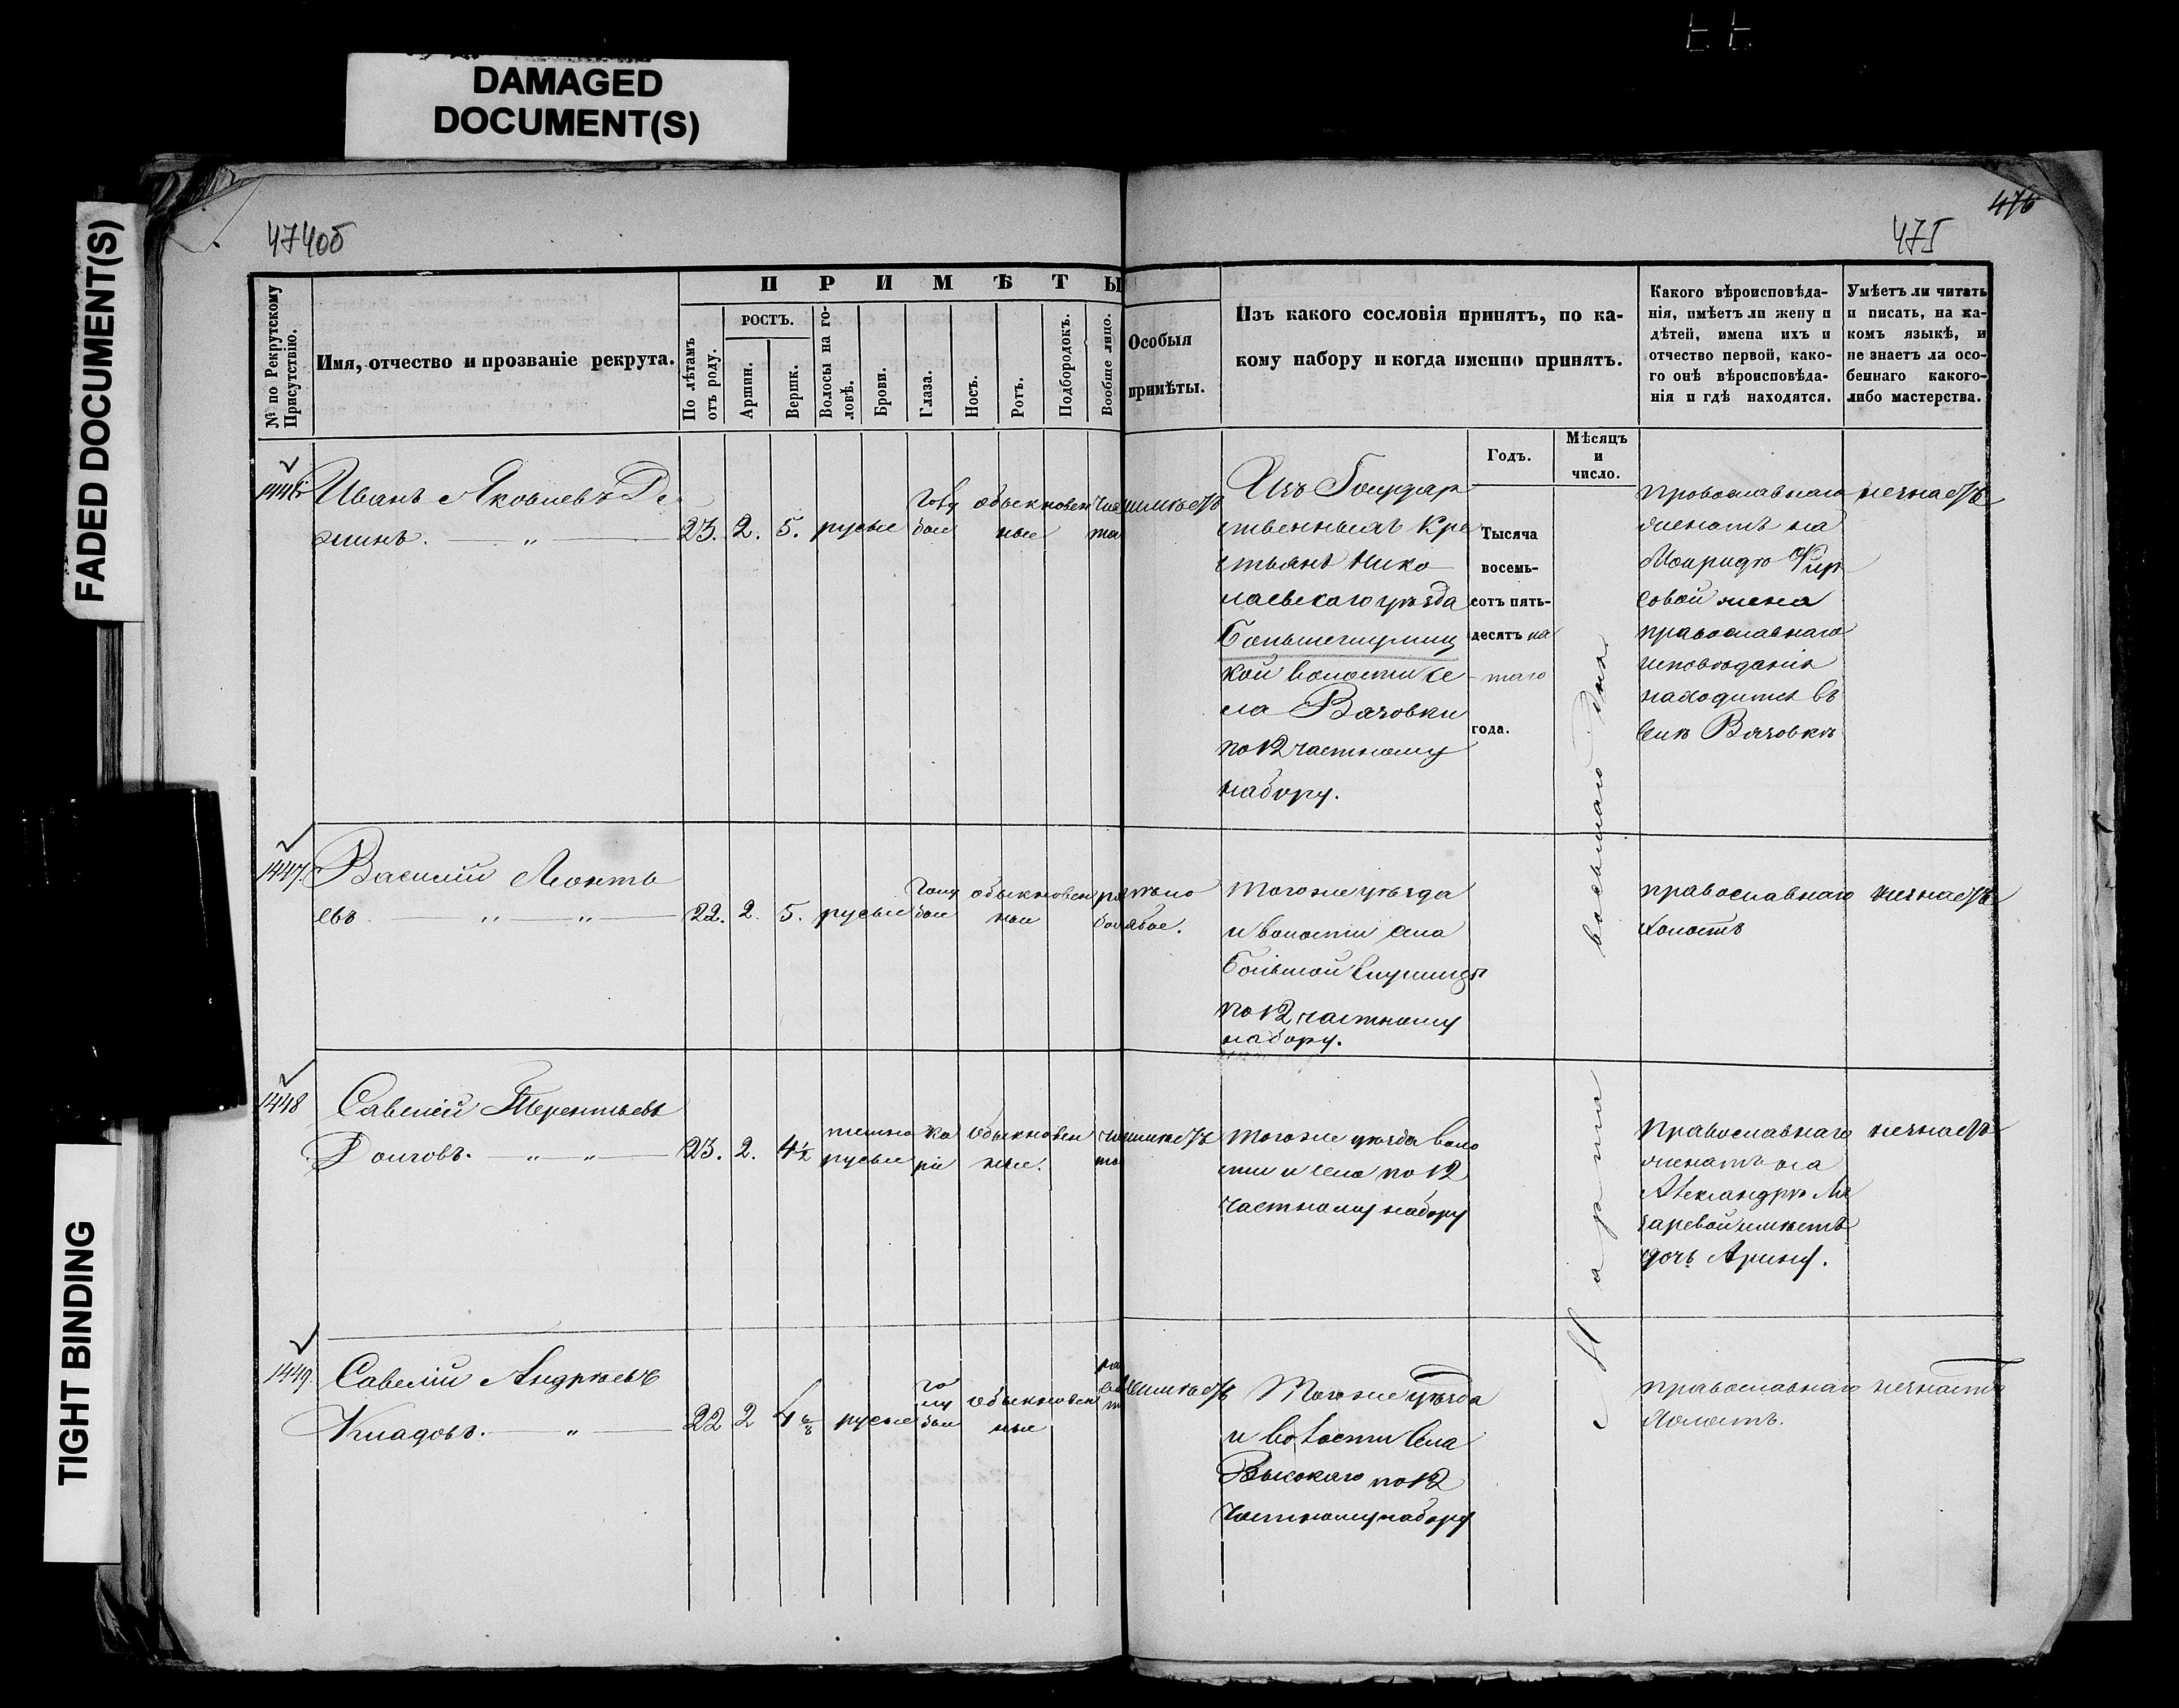 DAMAGED
DOCUMENT(S)
FADED DOCUMENT(S)
TIGHT BINDING
474об
476
475
№ по Рекрутскому
Присутствію.
Имя, отчество и прозваніе рекрута.
ПРИМѢТЫ
По лѣтамъ
отъ роду.
РОСТЪ.
Аршин.
Вершк.
Волосы на го-
ловѣ.
Брови.
Глаза.
Носъ.
Ротъ.
Подбородокъ.
Вообще лицо.
Особыя
примѣты.
Изъ какого сословія принятъ, по ка-
кому набору и когда именно принятъ.
Годъ.
Мѣсяцъ
и
число.
Какого вѣроисповѣда-
нія, имѣетъ ли жену и
дѣтей, имена ихъ и
отчество первой, како-
го онѣ вѣроисповѣда-
нія и гдѣ находятся.
Умѣетъ ли читать
и писать, на ка-
комъ языкѣ, и
не знаетъ ли осо-
беннаго какого-
либо мастерства.
1446
Иванъ Яковлевъ Де
минъ. — „ —
23. 2. 5. русые
голу
бые
обыкновен
ные
чис
то
неимѣетъ
Изъ Государ
ственныхъ Кре
стьянъ Нико
лаевскаго уѣзда
Большеглушиц
кой волости се
ла Вязовки
по 12 частному
набору.
Тысяча
восемь-
сотъ пять-
десятъ пя
таго
года.
восьмаго дня
Марта
православнаго
женатъ на
Фир
совой жена
православнаго
исповѣданія
находится въ
селѣ Вязовкѣ
незнаетъ
1447.
Василій Леонть
евъ. „ — „ —
22. 2. 5. русые
голу
бые
обыкновен
ные
Тогоже уѣзда
и волости села
Большой Глушицы
по 12 частному
набору.
православнаго
холостъ
незнаетъ
1448
Савелій Терентьевъ
Долговъ. — „ — „ —
23. 2. 4½
темно
русые
ка
ріе
обыкновен
ные.
чи
то
неимѣетъ
Тогоже уѣзда воло
сти и села по 12
частному набору
Православнаго
женатъ на
Александрѣ Ла
заревой имѣетъ
дочь Арину.
незнаетъ
1449.
Савелій Андреевъ
Кладовъ. — „ —
22 2 4 6/8 русые
го
лу
бые
обыкновен
ные
неимѣетъ
Тогоже уѣзда
и волости села
Высокаго по 12
частному набору
православнаго
холостъ.
незнаетъ